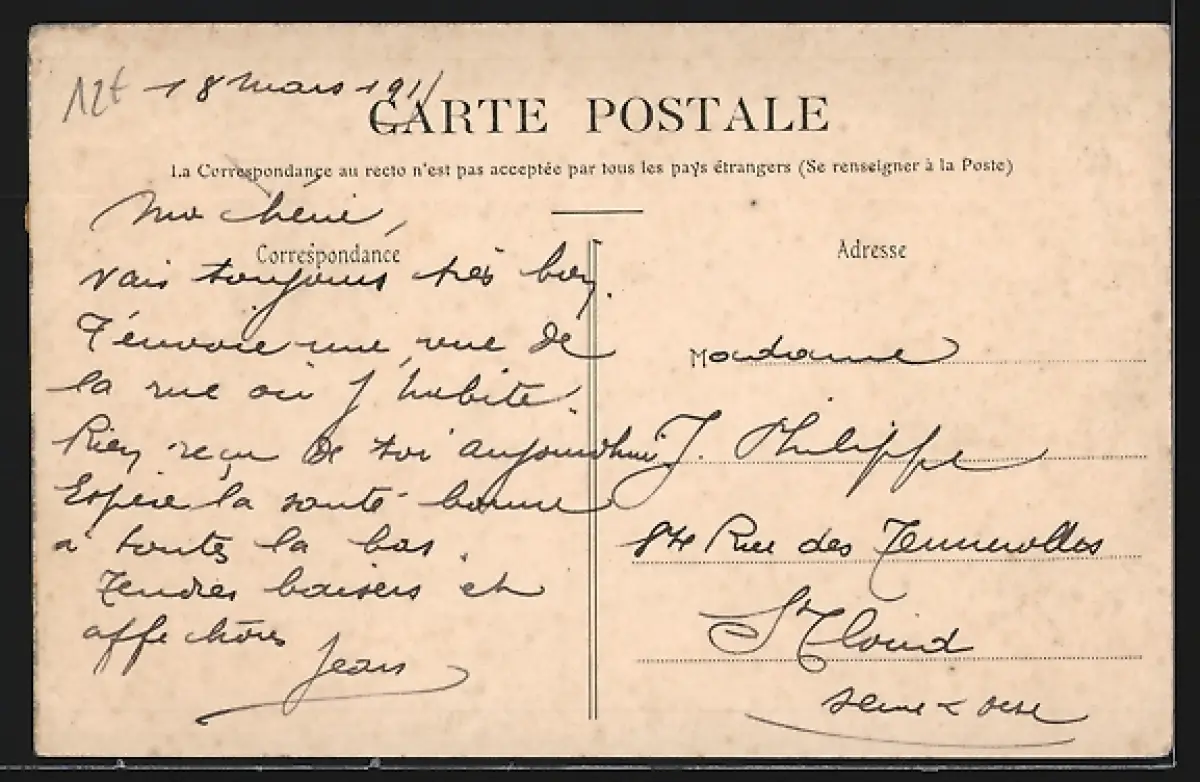 12t
18 mars 1911
CARTE POSTALE
La Correspondance au recto n'est pas acceptée par tous les pays étrangers (Se renseigner à la Poste)
Ma chérie,
Correspondance
Vais toujours très bien.
T'envoie une vue de
la rue où j'habite.
Rien reçu de toi aujourd'hui
Espère la santé bonne
a toutes la bas.
Tendres baisers et
affections
Jean
Adresse
Madame
J. Philippe
Rue des Tennerolles
St Cloud
Seine & Oise